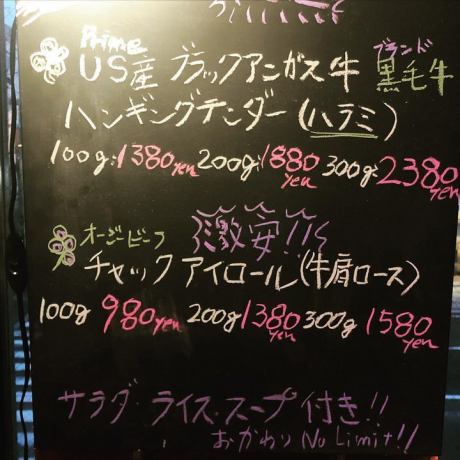 Prime ブランド
US産 ブラックアンガス牛 黒毛牛
ハンギングテンダー(ハラミ)
100g:1380yen 200g:1880yen 300g:2380yen
オージービーフ 激安!!
チャックアイロール(牛肩ロース)
100g 980yen 200g 1380yen 300g 1580yen
サラダ・ライス・スープ付き!!
おかわり No Limit!!